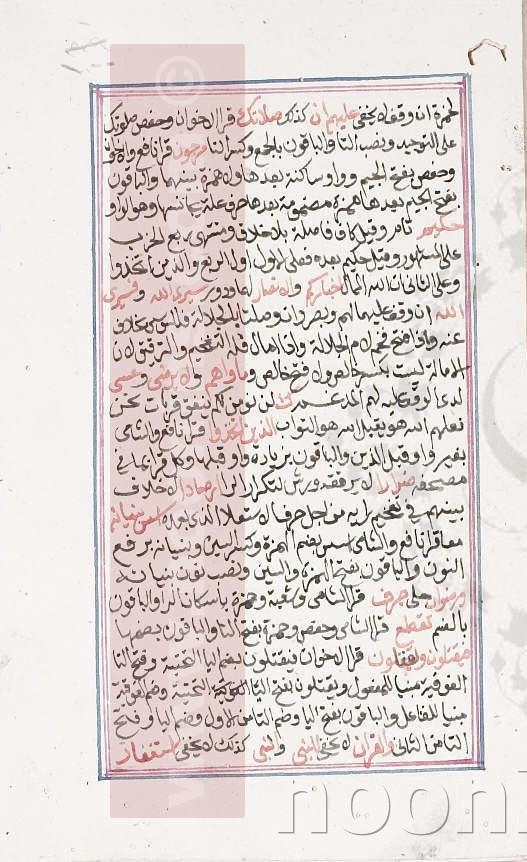 لحمزة ان وقف لا يخفى عليهم ان كذلك صلاتك قرا الاخوان وحفص صلوتك
على التوحيد ونصب التا والباقون بالجمع وكسر التا مرجون قرا نافع والاخوان
وحفص بفتح الجيم وواو ساكنة بعدها ولا همزة بينهما والباقون
بفتح الجيم بعدها همزة مضمومة بعدها حرف علة
حكيم تام وقيل كاف فاصلة بلا خلاف ومنتهى ربع الحزب
على المشهور وقيل حكيم بعده فعلى الاول اول الربع والذين اتخذوا
وعلى الثانى ان الله الممال اخباركم والانصار لهما ودورى سيرى الله وفسيرى
الله ان وقف عليهما لهم وبصرى وان وصلتا بالجلالة فللسوسى بخلاف
عنه واذا فتح فخم لام الجلالة واذا امال فله التفخيم والترقيق لان
الامالة ليست بكسر خالص ولا فتح خالص وماواهم ولا يرضى وعسى
لدى الوقف عليه لهم المدغم لن نومن لك ينفق قربات نحن
نعلمهم الله هو يقبل الله هو التواب الذين اتخذوا قرا نافع والشامى
بغير واو قبل الذين والباقون بزيادة واو قبلها وكل قرا بما فى
مصحفه ضرارا لا يرققه ورش لتكرار الرا ارصادا لا خلاف
بينهم فى تفخيم رايه من اجل حرف الاستعلا الذى بعده اسس بنيانه
معا قرا نافع والشامى اسس بضم الهمزة وكسر السين وبنيانه برفع
النون والباقون بفتح الهمزة والسين ونصب نون بنيانه
ورضوان جلى جرف قرا الشامى وشعبة وحمزة باسكان الرا والباقون
بالضم تقطع قرا الشامى وحفص وحمزة بفتح التا والباقون بضمها
فيقتلون ويقتلون قرا الاخوان فيقتلون بضم اليا التحتية وفتح التا
الفوقية مبنيا للمفعول ويقتلون بفتح اليا التحتية وضم الفوقية
مبنيا للفاعل والباقون بفتح اليا وضم التا من الاول وضم اليا وفتح
التا من الثانى والقران لا يخفى النبى والنبى كذلك لا يخفى استغفار
noon